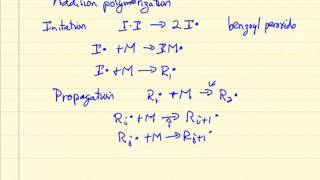 Addition polymerization
Initation I-I → 2I• benzoyl peroxido
I• + M → IM•
I• + M → R₁•
Propagation R₁• + M → R₂•
Rᵢ• + M → Rᵢ₊₁•
Rⱼ• + M → Rⱼ₊₁•